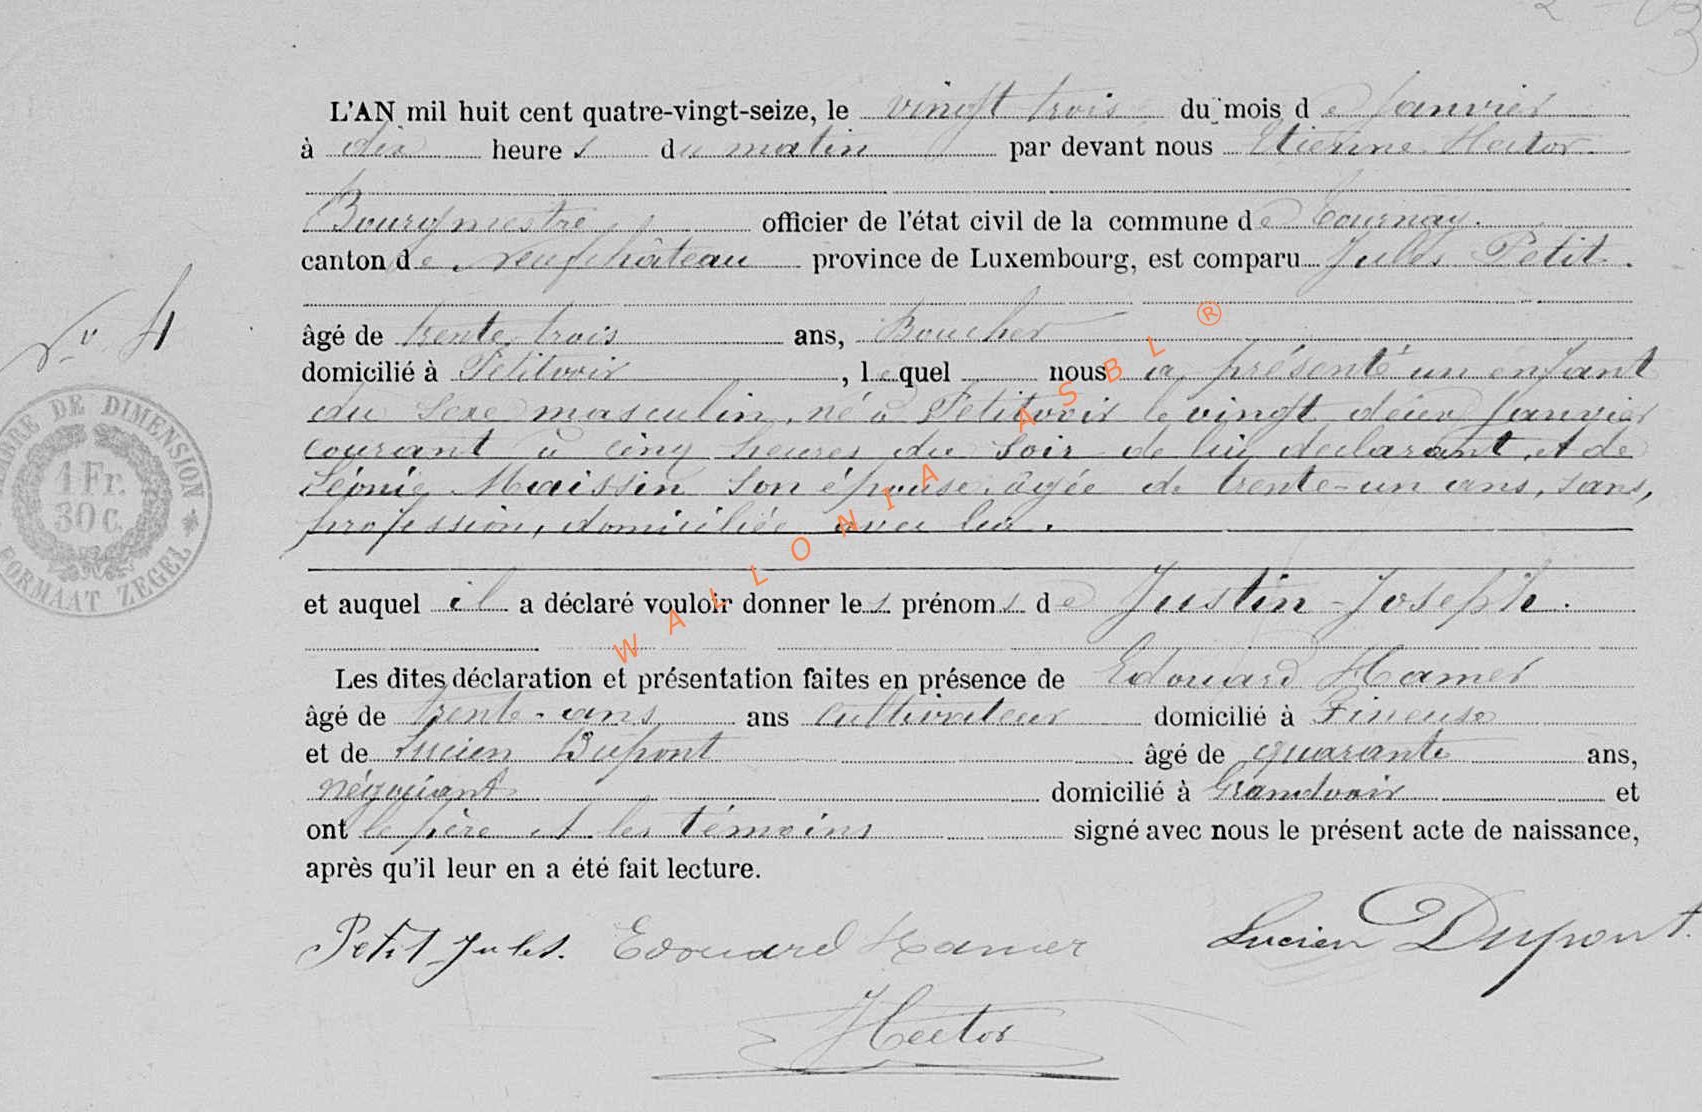 L'AN mil huit cent quatre-vingt-seize, le vingt trois du mois de Janvier
à dix heures du matin par devant nous Etienne Hector
Bourgmestre officier de l'état civil de la commune de Tournay.
canton de Neufchâteau province de Luxembourg, est comparu Jules Petit.
No 4
âgé de trente trois ans, Boucher
domicilié à Petitvoir, lequel nous a présenté un enfant
du sexe masculin, né à Petitvoir le vingt deux Janvier
courant à cinq heures du soir de lui déclarant et de
Léonie Maissin son épouse, âgée de trente-un ans, sans,
profession, domiciliée avec lui.
et auquel il a déclaré vouloir donner les prénoms de Justin-Joseph.
Les dites déclaration et présentation faites en présence de Edouard Hamer
âgé de trente-ans ans cultivateur domicilié à Fineuse
et de Lucien Dupont âgé de quarante ans,
négociant domicilié à Grandvoir et
ont le père et les témoins signé avec nous le présent acte de naissance,
après qu'il leur en a été fait lecture.
Petit Jules. Edouard Hamer Lucien Dupont.
Hector
TIMBRE DE DIMENSION
1 Fr.
30 c.
FORMAAT ZEGEL
WALLONIA ASBL ®